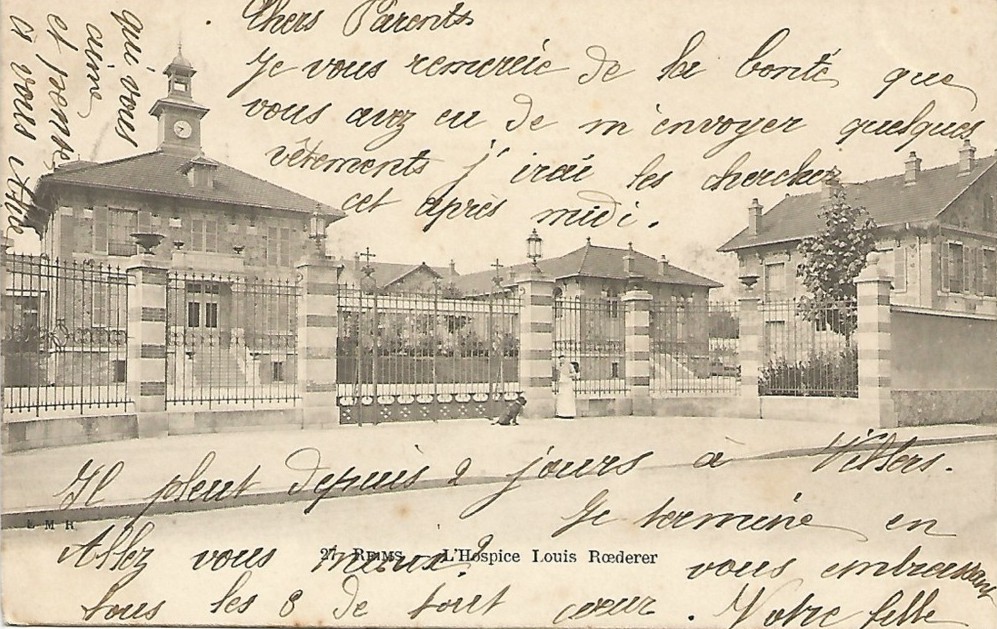 Chers Parents
Je vous remercie de la bonté que
vous avez eu de m'envoyer quelques
vêtements j'irai les chercher
cet après midi.
Il pleut depuis 2 jours à Villers.
Allez vous mieux? Je termine en
vous embrassant
tous les 8 de tout cœur. Votre fille
qui vous
aime
et pense
à vous
E M R
27 REIMS — L'Hospice Louis Rœderer